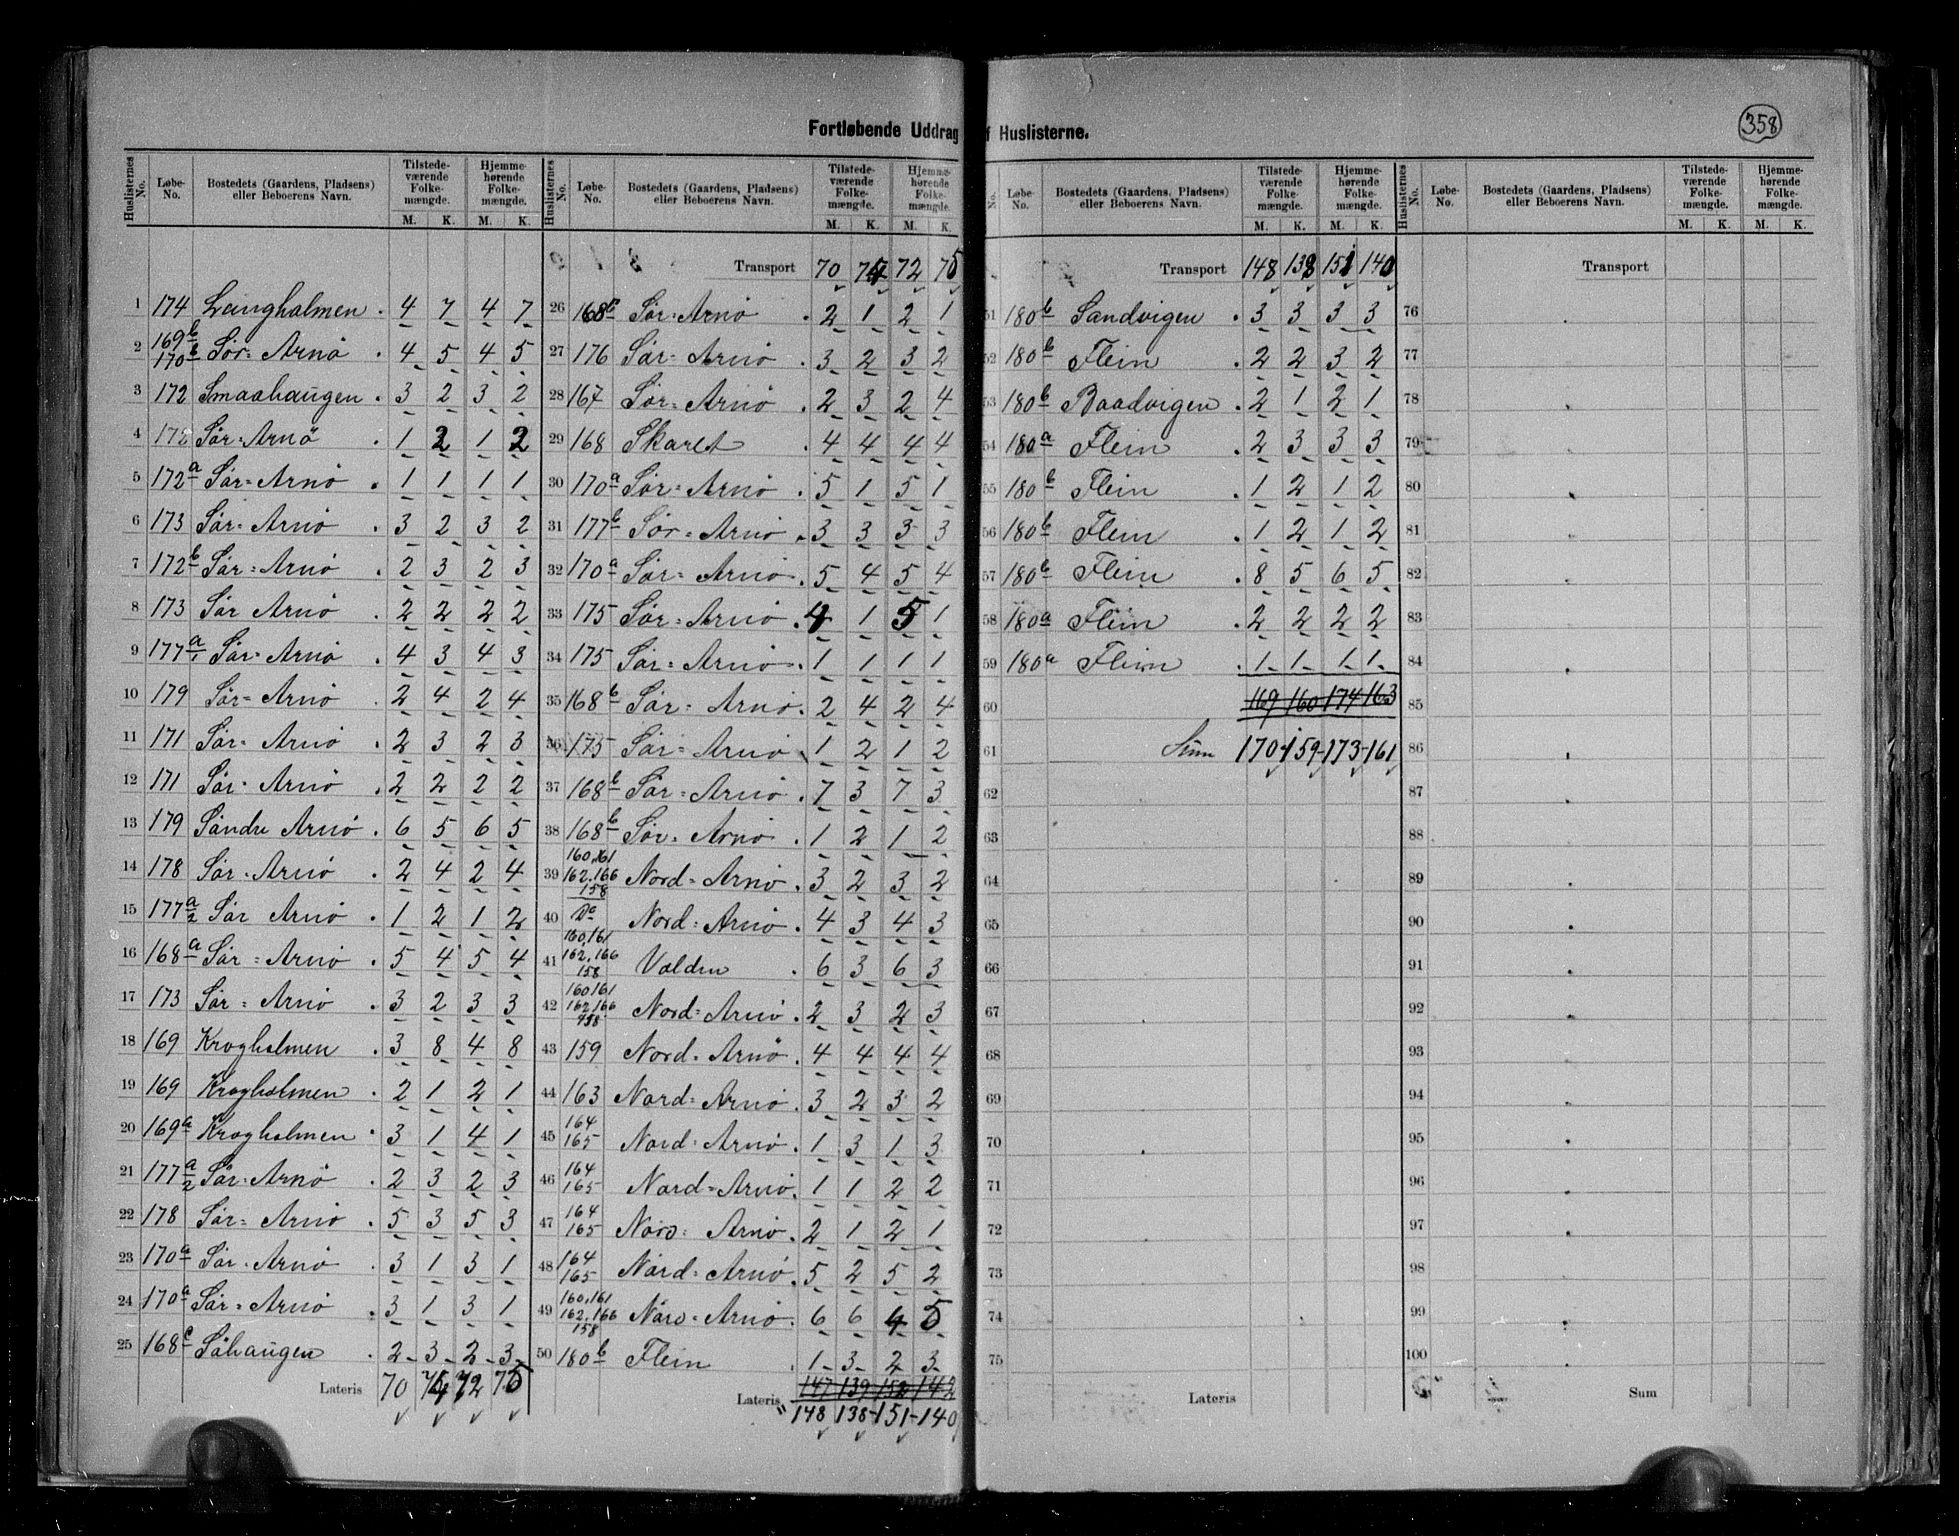 358
Fortløbende Uddrag f Huslisterne.
Huslisternes No. Løbe-No. Bostedets (Gaardens, Pladsens) eller Beboerens Navn. Tilstedeværende Folkemængde. M. K. Hjemmehørende Folkemængde. M. K.
1 174 Langholmen 4 7 4 7
2 169b 170b Sør-Arnø 4 5 4 5
3 172 Smaahaugen 3 2 3 2
4 172 Sør-Arnø 1 2 1 2
5 172a Sør-Arnø 1 1 1 1
6 173 Sør-Arnø 3 2 3 2
7 172b Sør-Arnø 2 3 2 3
8 173 Sør Arnø 2 2 2 2
9 177a/1 Sør-Arnø 4 3 4 3
10 179 Sør-Arnø 2 4 2 4
11 171 Sør-Arnø 2 3 2 3
12 171 Sør-Arnø 2 2 2 2
13 179 Søndre Arnø 6 5 6 5
14 178 Sør-Arnø 2 4 2 4
15 177a/2 Sør Arnø 1 2 1 2
16 168a Sør-Arnø 5 4 5 4
17 173 Sør-Arnø 3 2 3 3
18 169 Krogholmen 3 8 4 8
19 169 Krogholmen 2 1 2 1
20 169a Krogholmen 3 1 4 1
21 177a/2 Sør-Arnø 2 3 2 3
22 178 Sør-Arnø 5 3 5 3
23 170a Sør-Arnø 3 1 3 1
24 170a Sør-Arnø 3 1 3 1
25 168c Søhaugen 2 3 2 3
Lateris 70 74 72 75
Huslisternes No. Løbe-No. Bostedets (Gaardens, Pladsens) eller Beboerens Navn. Tilstedeværende Folkemængde. M. K. Hjemmehørende Folkemængde. M. K.
Transport 70 74 72 75
26 168c Sør-Arnø 2 1 2 1
27 176 Sør-Arnø 3 2 3 2
28 167 Sør-Arnø 2 3 2 4
29 168 Skaret 4 4 4 4
30 170a Sør-Arnø 5 1 5 1
31 177b Sør-Arnø 3 3 3 3
32 170a Sør-Arnø 5 4 5 4
33 175 Sør-Arnø 4 1 5 1
34 175 Sør-Arnø 1 1 1 1
35 168b Sør-Arnø 2 4 2 4
36 175 Sør-Arnø 1 2 1 2
37 168b Sør-Arnø 7 3 7 3
38 168b Sør-Arnø 1 2 1 2
39 160,161 162,166 158 Nord-Arnø 3 2 3 2
40 Do Nord-Arnø 4 3 4 3
41 160,161 162,166 158 Valden 6 3 6 3
42 160 161 162,166 158 Nord-Arnø 2 3 2 3
43 159 Nord-Arnø 4 4 4 4
44 163 Nord-Arnø 3 2 3 2
45 164 165 Nord-Arnø 1 3 1 3
46 164 165 Nord-Arnø 1 1 2 2
47 164 165 Nord-Arnø 2 1 2 1
48 164 165 Nord-Arnø 5 2 5 2
49 160,161 162,166 158 Nord-Arnø 6 6 4 5
50 180b Flein 1 3 2 3
147 139 152 142
Lateris 148 138-151-140
No. Løbe-No. Bostedets (Gaardens, Pladsens) eller Beboerens Navn. Tilstedeværende Folkemængde. M. K. Hjemmehørende Folkemængde. M. K.
Transport 148 138 151 140
51 180b Sandvigen 3 3 3 3
52 180b Flein 2 2 3 2
53 180b Baadvigen 2 1 2 1
54 180a Flein 2 3 3 3
55 180b Flein 1 2 1 2
56 180b Flein 1 2 1 2
57 180b Flein 8 5 6 5
58 180a Flein 2 2 2 2
59 180a Flein 1 1 1 1
60 169 160 174 163
61 Sum 170-159-173-161
62
63
64
65
66
67
68
69
70
71
72
73
74
75
Lateris
Huslisternes No. Løbe-No. Bostedets (Gaardens, Pladsens) eller Beboerens Navn. Tilstedeværende Folkemængde. M. K. Hjemmehørende Folkemængde. M. K.
Transport
76
77
78
79
80
81
82
83
84
85
86
87
88
89
90
91
92
93
94
95
96
97
98
99
100
Sum